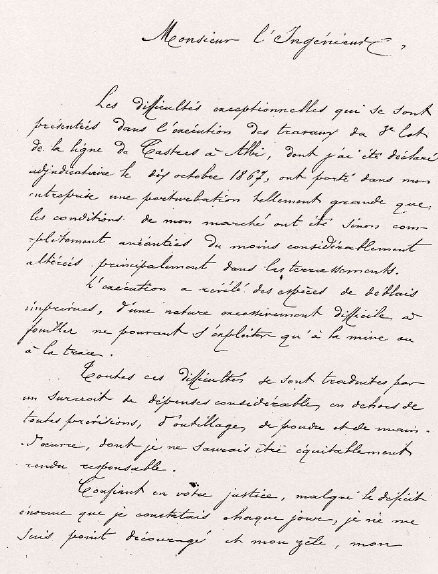 Monsieur l'Ingénieur,
Les difficultés exceptionnelles qui se sont
présentées dans l'exécution des travaux du 3e lot
de la ligne de Castres à Albi, dont j'ai été déclaré
adjudicataire le dix octobre 1867, ont porté dans mon
entreprise une perturbation tellement grande que
les conditions de mon marché ont été sinon com-
plètement anéanties du moins considérablement
altérées principalement dans les terrassements.
L'exécution a révélé des espèces de déblais
imprévues, d'une nature excessivement difficile à
fouiller ne pouvant s'exploiter qu'à la mine ou
à la trace.
Toutes ces difficultés se sont traduites par
un surcroit de dépenses considérables, en dehors de
toutes prévisions, d'outillage, de poudre et de main-
d'œuvre, dont je ne saurais être équitablement
rendu responsable.
Confiant en votre justice, malgré le déficit
énorme que je constatais chaque jour, je ne me
suis point découragé et mon zèle, mon